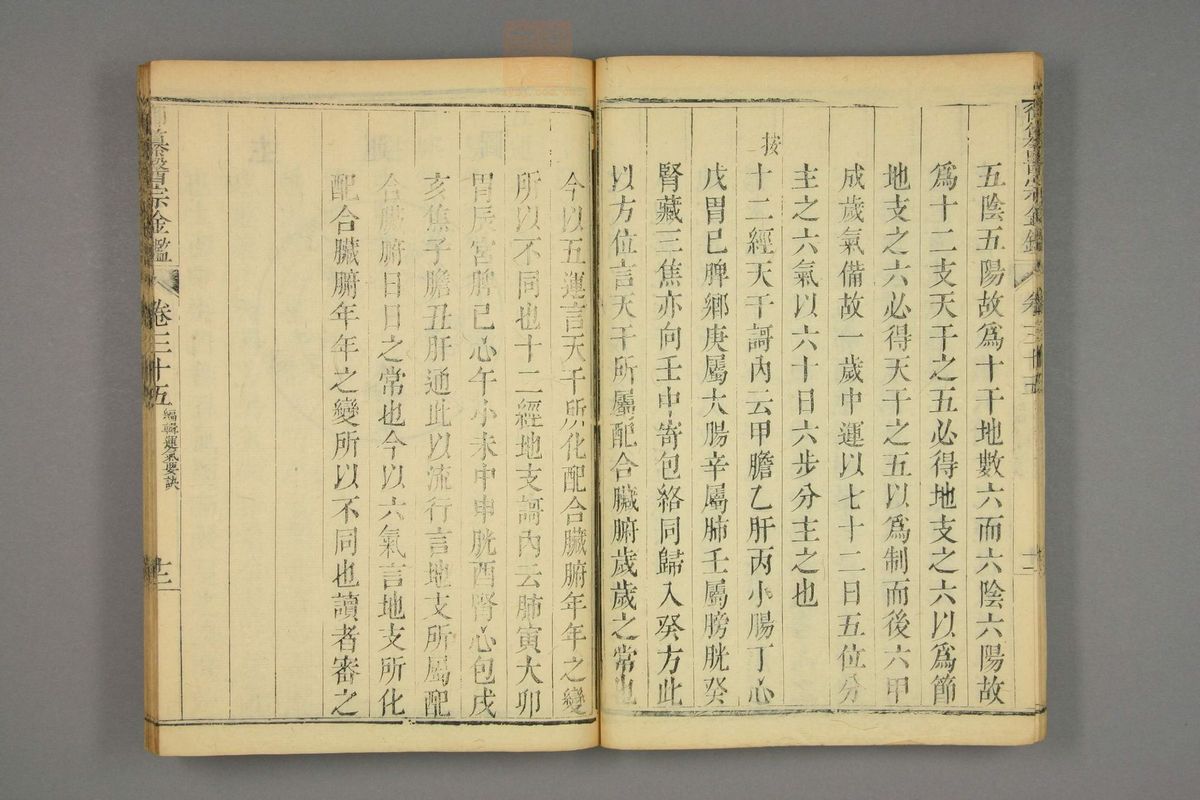 五陰五陽故爲十干地數六而六陰六陽故
爲十二支天干之五必得地支之六以爲節
地支之六必得天干之五以爲制而後六甲
成歲氣備故一歲中運以七十二日五位分
主之六氣以六十日六步分主之也
按
十二經天干謌內云甲膽乙肝丙小腸丁心
戊胃己脾鄉庚屬大腸辛屬肺壬屬膀胱癸
腎藏三焦亦向壬中寄包絡同歸入癸方此
以方位言天干所屬配合臟腑歲歲之常也
今以五運言天干所化配合臟腑年年之變
所以不同也十二經地支謌內云肺寅大卯
胃辰宮脾巳心午小未中申胱酉腎心包戌
亥焦子膽丑肝通此以流行言地支所屬配
合臟腑日日之常也今以六氣言地支所化
配合臟腑年年之變所以不同也讀者審之
纂醫宗金鑑
卷三十五
編輯運氣要訣
十二